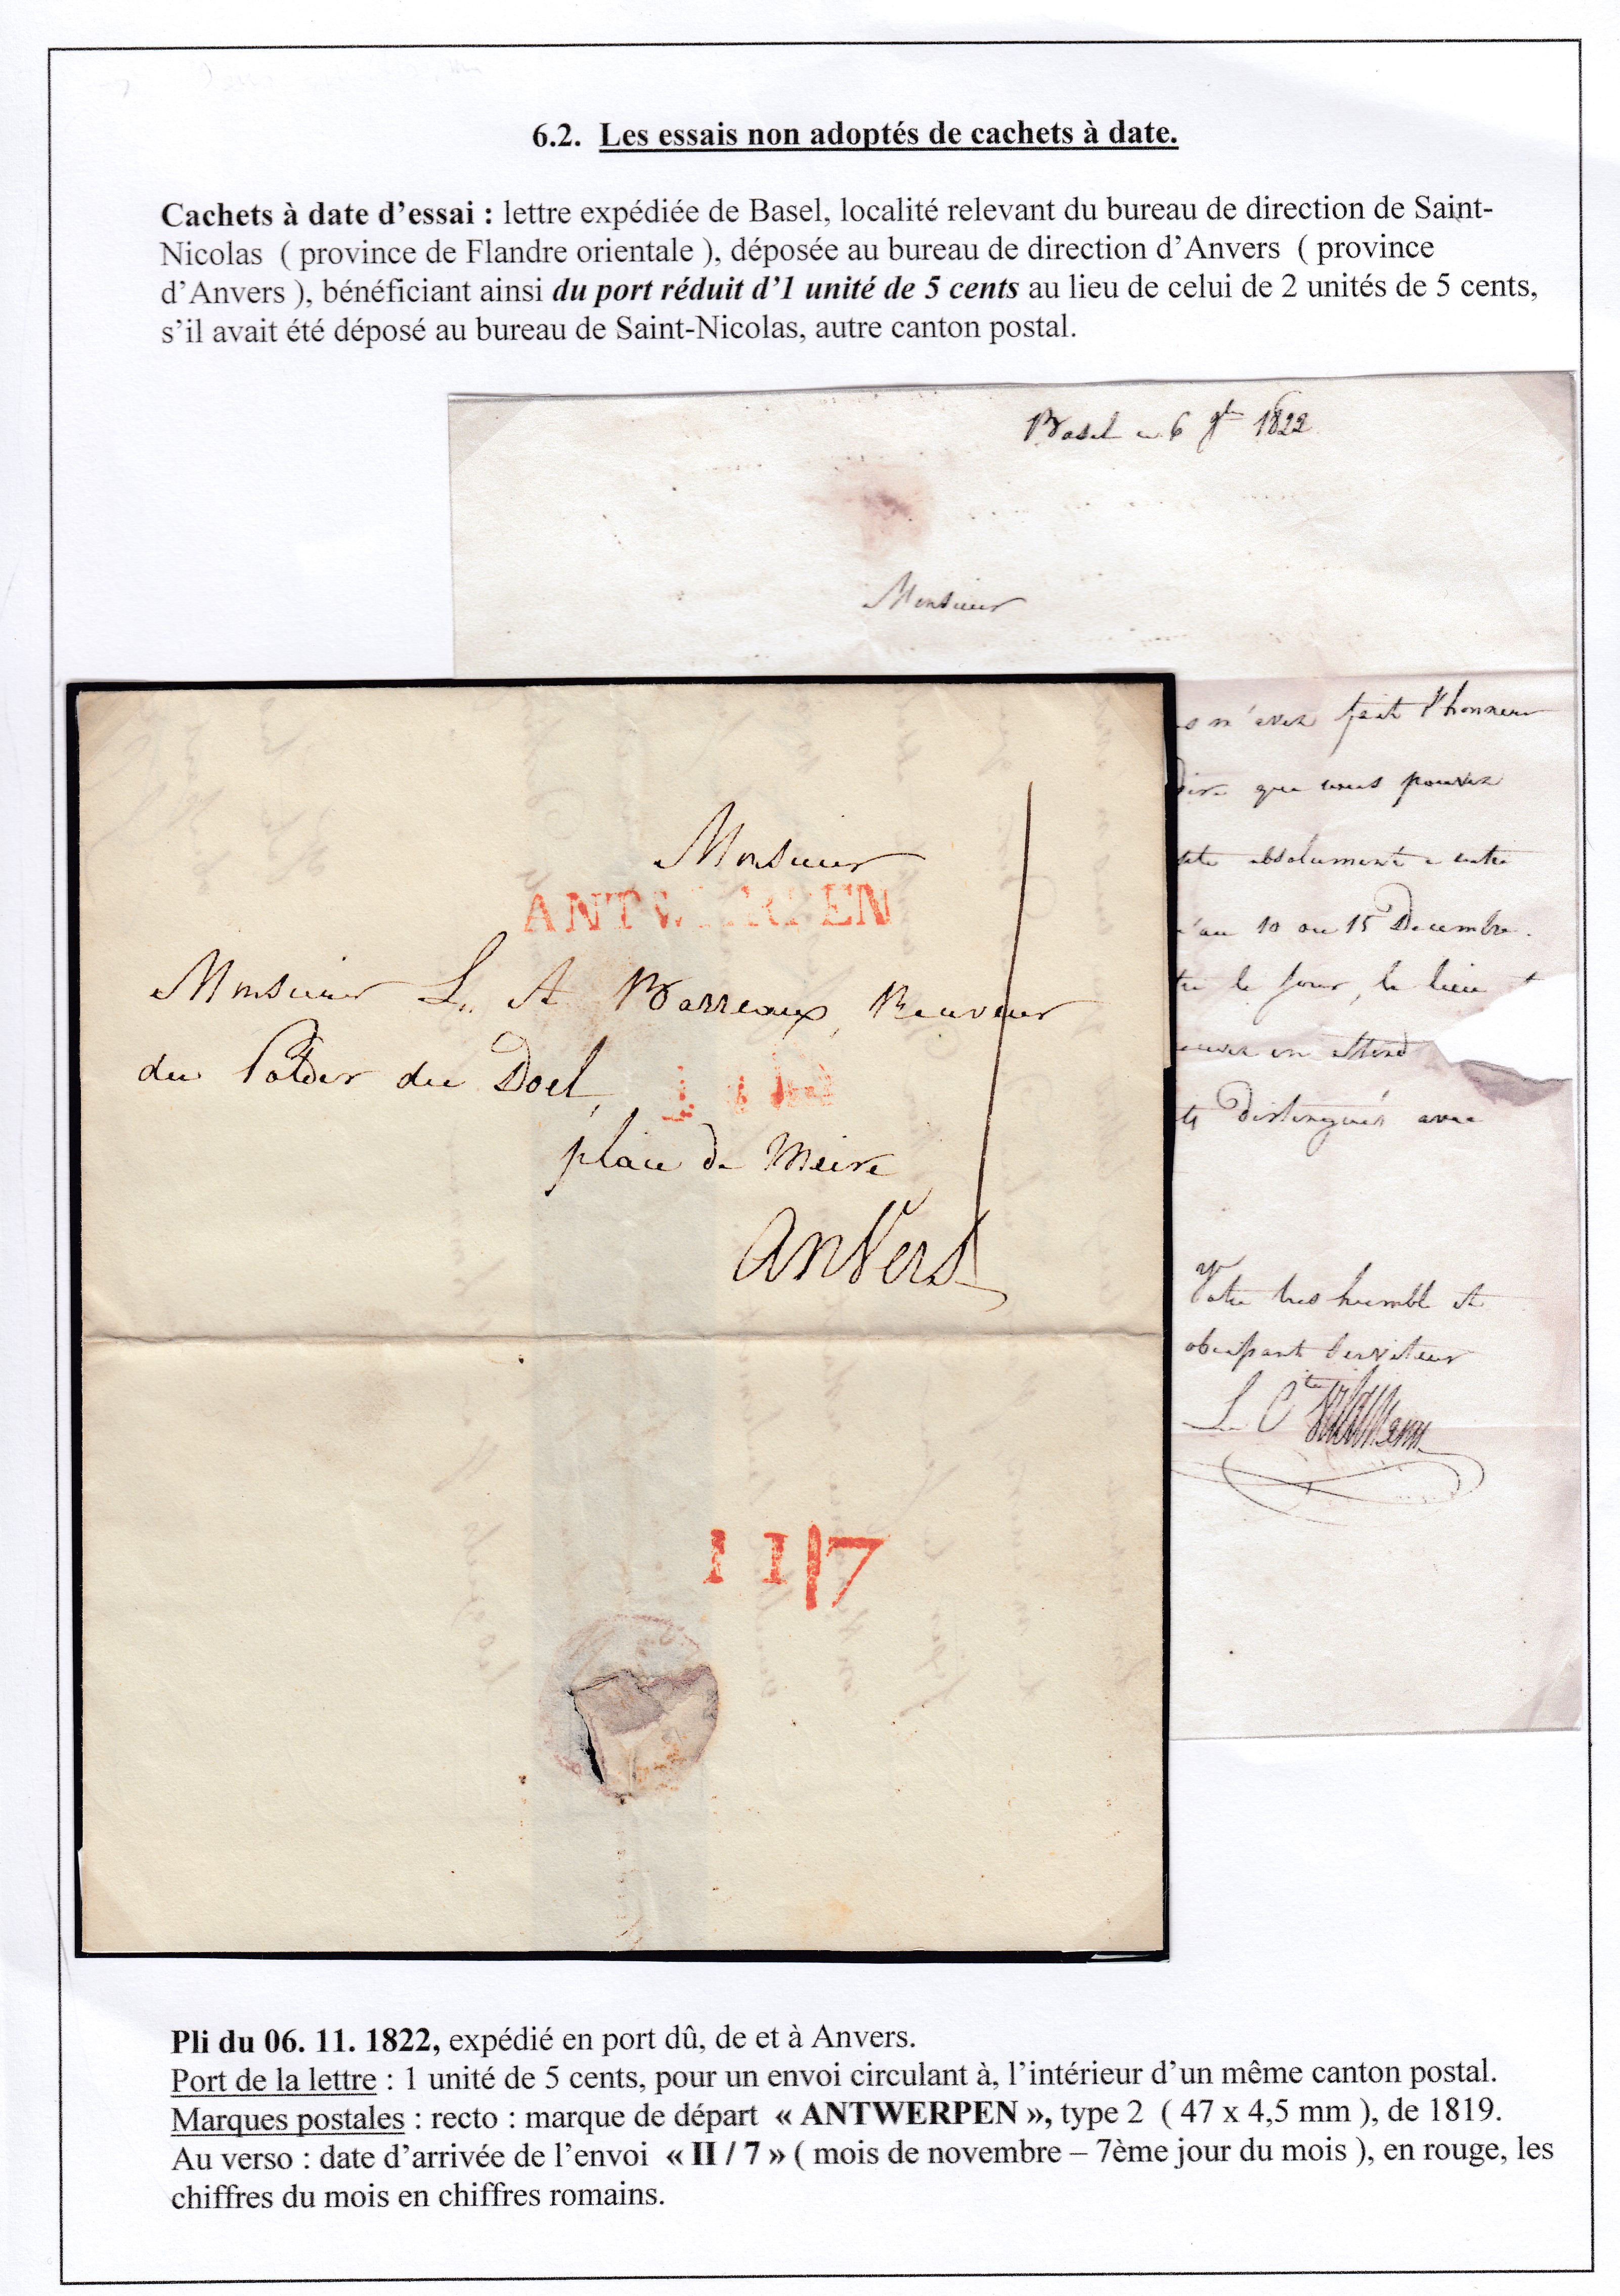 6.2. Les essais non adoptés de cachets à date.
Cachets à date d’essai : lettre expédiée de Basel, localité relevant du bureau de direction de Saint-
Nicolas ( province de Flandre orientale ), déposée au bureau de direction d’Anvers ( province
d’Anvers ), bénéficiant ainsi du port réduit d’1 unité de 5 cents au lieu de celui de 2 unités de 5 cents,
s’il avait été déposé au bureau de Saint-Nicolas, autre canton postal.
Basel 6 1822
Monsieur
m'avez fait l'honneur
dire que vous pouvez
absolument
au 10 ou 15 Decembre.
le jour, le lieu
attend
distingués avec
Votre tres humble et
obeissant serviteur
Monsieur
ANTWERPEN
Monsieur L. A Barreaux, Receveur
du Polder du Doel,
place de Meire
Anvers
I I|7
Pli du 06. 11. 1822, expédié en port dû, de et à Anvers.
Port de la lettre : 1 unité de 5 cents, pour un envoi circulant à, l’intérieur d’un même canton postal.
Marques postales : recto : marque de départ « ANTWERPEN », type 2 ( 47 x 4,5 mm ), de 1819.
Au verso : date d’arrivée de l’envoi « II / 7 » ( mois de novembre – 7ème jour du mois ), en rouge, les
chiffres du mois en chiffres romains.